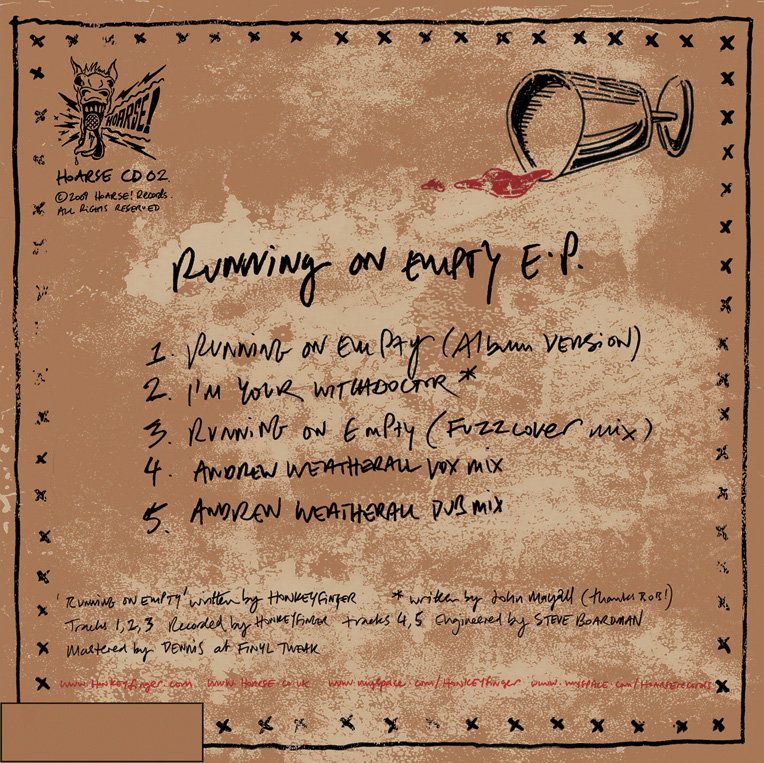 HOARSE!
HOARSE CD 02
© 2009 HOARSE! Records.
ALL RIGHTS RESERVED
RUNNING ON EMPTY E.P.
1. RUNNING ON EMPTY (Album VERSION)
2. I'M YOUR WITCHDOCTOR *
3. RUNNING ON EMPTY (FUZZCOVER MIX)
4 ANDREW WEATHERALL VOX MIX
5. ANDREW WEATHERALL DUB MIX
'RUNNING ON EMPTY' written by HONKEYFINGER * written by John Mayall (thanks ROB!)
Tracks 1, 2, 3 Recorded by HONKEYFINGER tracks 4, 5 Engineered by STEVE BOARDMAN
Mastered by DENNIS at FINYL TWEAK
www.Honkeyfinger.com www.Hoarse.co.uk www.myspace.com/Honkeyfinger www.myspace.com/Hoarserecords